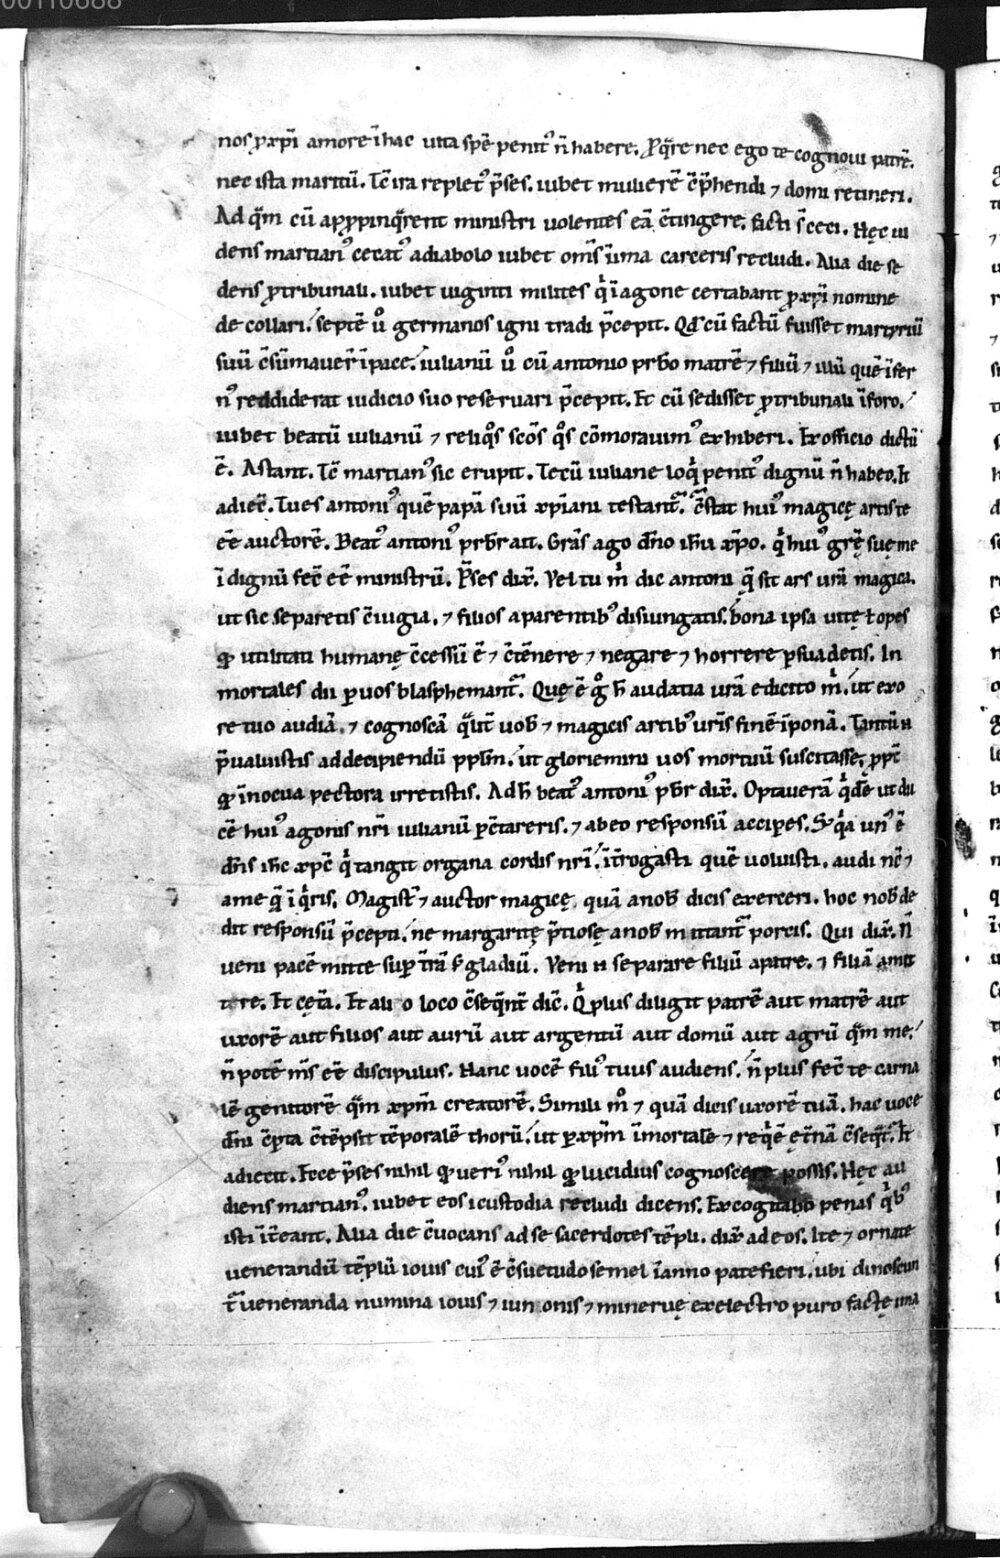 00110688
nos ꝓ xp̄i amore ī hac uita spē penit᷒ n̄ habere. Ꝓ q̄re nec ego te cognoui patrē.
nec ista maritū. Tc̄ ira replet᷒ p̄ses. iubet mulierē c̄p̄hendi ⁊ domi retineri.
Ad q̄m cū apꝓpinq̄rent ministri uolentes eā c̄tingere. facti s̄ ceci. Hęc ui
dens martian᷒ cecat᷒ adiabolo iubet om̄s ī ima carceris recludi. Alia die se
dens ꝓtribunali. iubet uiginti milites qͥ ī agone certabant ꝓ xp̄i nomine
de collari. septē ů germanos igni tradi p̄cepit. Qd̄ cū factū fuisset martyriū
suū c̄sūmauer̄ ī pace. iulianū ů cū antonio prb̄o matrē ⁊ filiū ⁊ illū quē īfer
n᷒ reddiderat iudicio suo reseruari p̄cepit. Et cū sedisset ꝓtribunali ī foro.
iubet beatū iulianū ⁊ reliqͦs sc̄os qͦs cōmorauim᷒ exhiberi. Ex officio dictū
ē. Astant. Tc̄ martian᷒ sic erupit. Tecū iuliane loqͥ penit᷒ dignū n̄ habeo. Et
adiec̄. Tu es antoni᷒ quē papā suū xp̄iani testant᷑. c̄stat hui᷒ magicę artis te
ēē auctorē. Beat᷒ antoni᷒ prb̄r ait. Gr̄as ago dn̄o ih̄u xp̄o. qͥ hui᷒ gr̄ę suę me
ī dignū fec̄ ēē ministrū. P̄ses dix̄. Vel tu mͥ dic antoni q̄ sit ars ur̄a magica.
ut sic separetis c̄iugia. ⁊ filios aparentib᷒ disiungatis. bona ipsa uitę ł opes
ꝙ utilitati humanę c̄cessū ē ⁊ c̄tēnere ⁊ negare ⁊ horrere ꝑsuadetis. In
mortales dii ꝑ uos blasphemant᷑. Quę ē gͦ h̄ audacia ur̄a edicito mͥ. ut exo
re tuo audiā. ⁊ cognoscā qͣlit̄ uob̄ ⁊ magicis artib᷒ ur̄is finē īponā. Tantū n̄
p̄ualuistis addecipiendū ppl̄m. ut gloriemini uos mortuū suscitasse. ꝓpt̄
ꝙ īnocua pectora irretistis. Ad h̄ beat᷒ antoni᷒ pb̄r dix̄. Optauerā qͥdē ut du
cē hui᷒ agonis nr̄i iulianū ꝑc̄tareris. ⁊ ab eo responsū acciꝑes. S; qͥa un᷒ ē
dn̄s ih̄c xp̄c qͥ tangit organa cordis nr̄i. īt̄rogasti quē uoluisti. audi nc̄ ⁊
ame q̄ īqͥris. Magist̄ ⁊ auctor magicę. quā anob̄ dicis exerceri. hoc nob̄ de
dit responsū p̄cepti. ne margaritę p̄tiosę anob̄ mittant᷑ porcis. Qui dix̄. N̄
ueni pacē mitte suꝑ t̄rā s; gladiū. Veni n̄ separare filiū apatre. ⁊ filiā amat
tere. Et cęt̄a. Et ali o loco c̄seq̄nt̄ dic̄. Qͥ plus diligit patrē aut matrē aut
uxorē aut filios aut aurū aut argentū aut domū aut agrū q̄m me.
n̄ potē m̄s ēē discipulus. Hanc uocē fili᷒ tuus audiens. n̄ plus fec̄ te carna
lē genitorē q̄m xp̄m creatorē. Simili mͦ ⁊ quā dicis uxorē tuā. hac uoce
dn̄i c̄ꝑta c̄tēpsit tēporalē thorū. ut ꝑ xp̄m īmortalē ⁊ req̄ē et̄nā c̄seqͣt᷑. Et
adiecit. Ecce p̄ses nihil ꝙ ueri᷒ nihil ꝙ lucidius cognoscere possis. Hęc au
diens martian᷒. iubet eos ī custodia recludi dicens. Excogitabo penas qͥb᷒
isti īt̄eant. Alia die c̄uocans ad se sacerdotes tēpli. dix̄ ad eos. Ite ⁊ ornate
uenerandū tēplū iouis cui᷒ ē c̄suetudo semel ī anno patefieri. ubi dinoscun
t᷑ ueneranda numina iouis ⁊ iunonis ⁊ mineruę ex electro puro factę ima